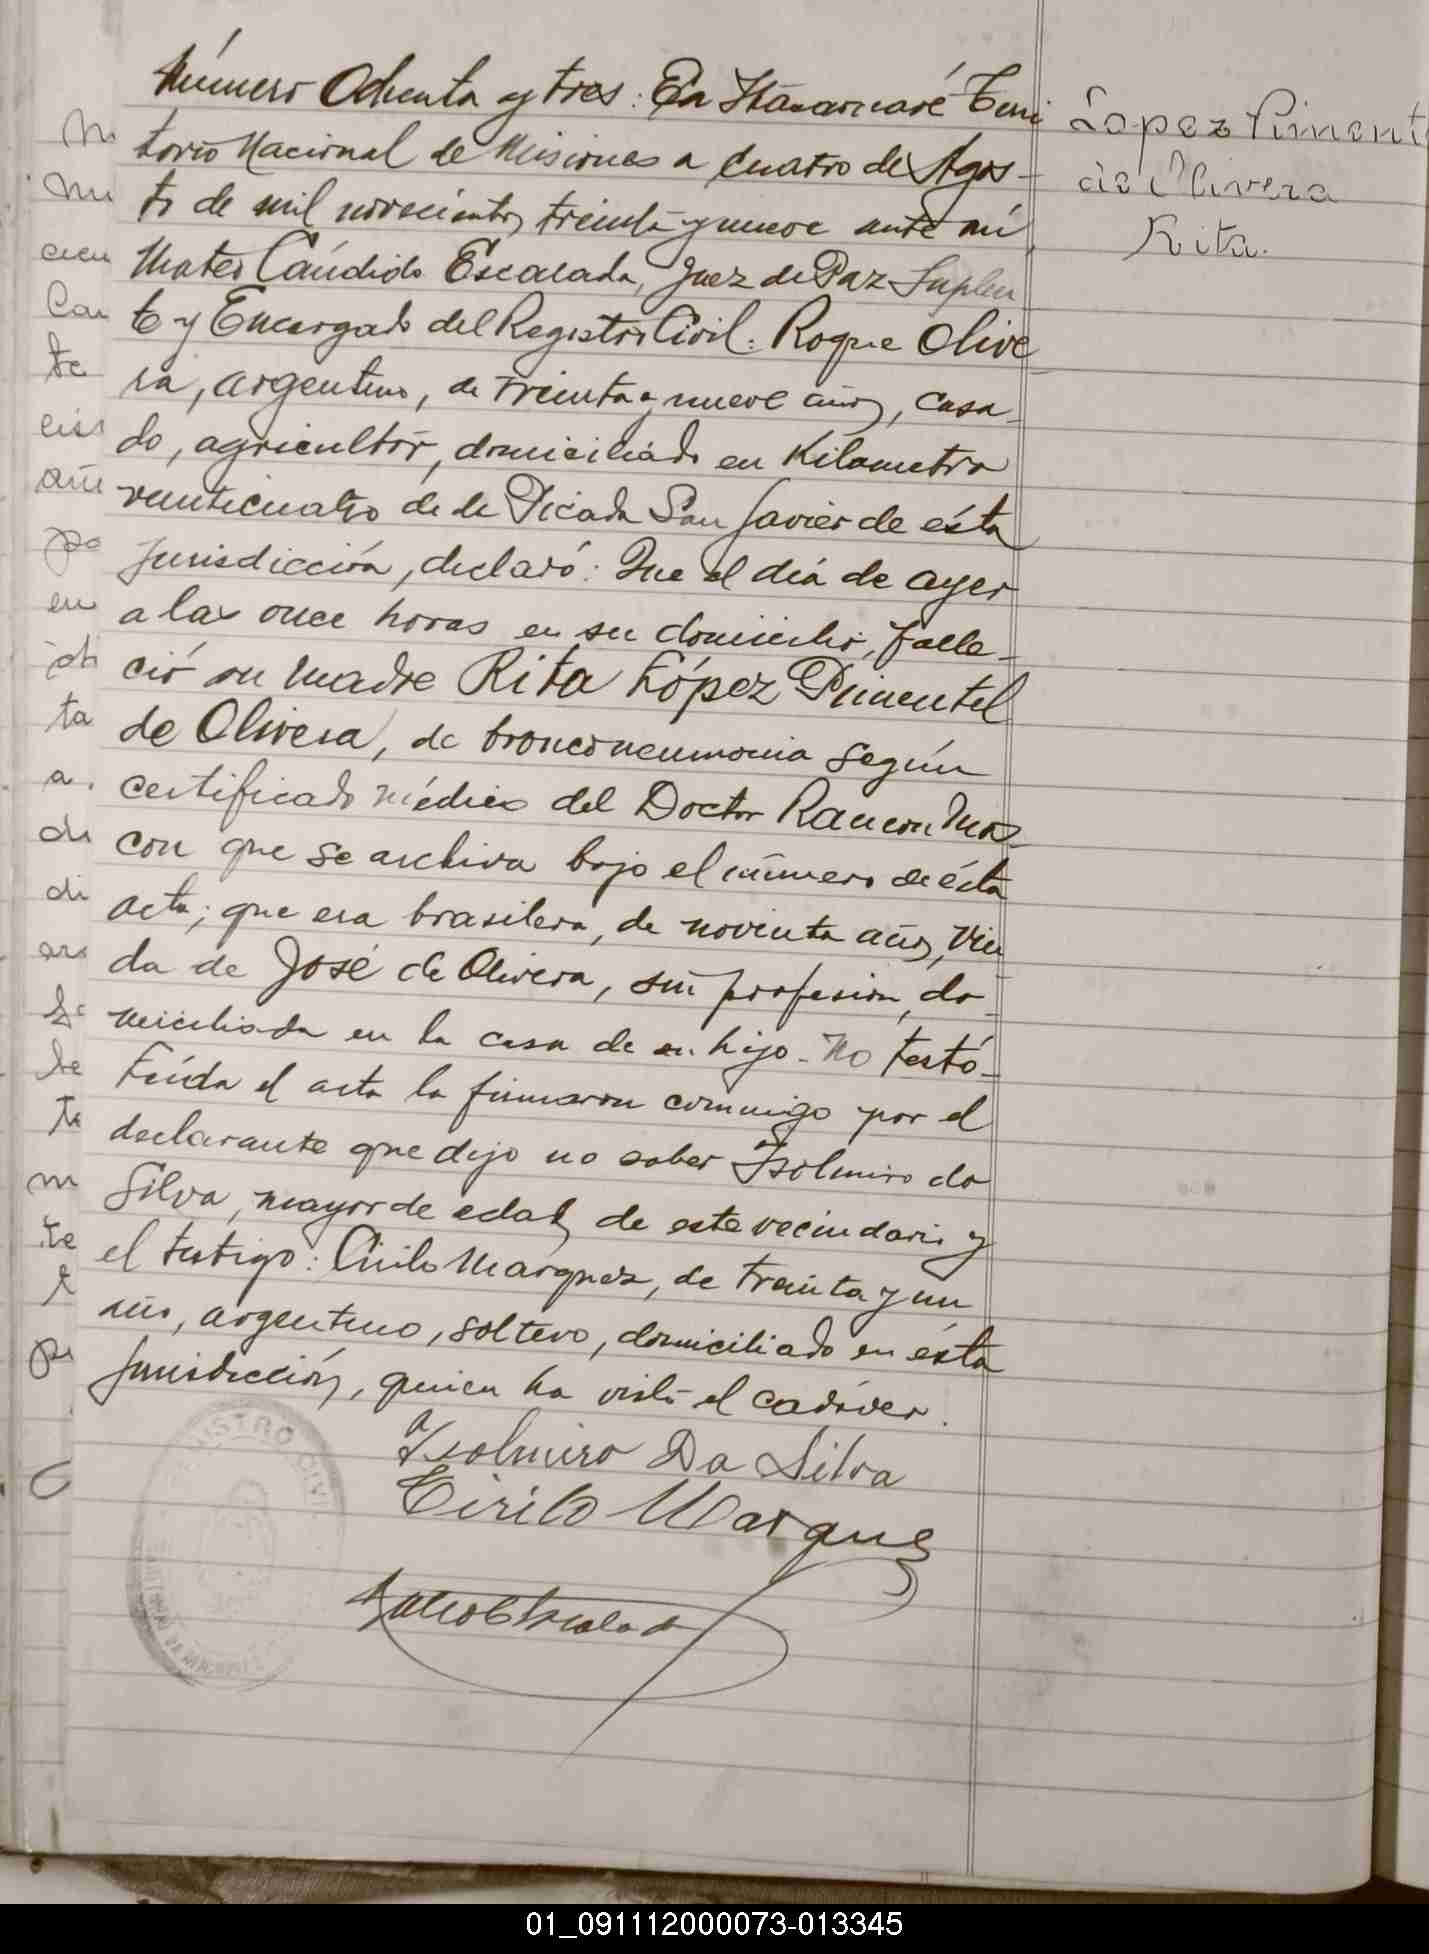 Número Ochenta y tres: En Itacaruaré Terri
torio Nacional de Misiones a cuatro de Agos-
to de mil novecientos treinta y nueve ante mí,
Mateo Cándido Escalada, Juez de Paz Suplen
te y Encargado del Registro Civil: Roque Olive
ra, argentino, de treinta y nueve años, casa-
do, agricultor, domiciliado en Kilometro
veinticuatro de la Picada San Javier de ésta
jurisdicción, declaró: Que el día de ayer
a las once horas en su domicilio, falle-
ció su madre Rita López Pimentel
de Olivera, de bronconeumonia según
certificado médico del Doctor Ramon
con que se archiva bajo el número de ésta
acta; que era brasilera, de noventa años, viu
da de José de Olivera, sin profesion, do-
miciliada en la casa de su hijo. No testó-
Leída el acta la firmaron conmigo por el
declarante que dijo no saber Isolmiro da
Silva, mayor de edad, de este vecindario y
el testigo: Cirilo Marquez, de treinta y un
año, argentino, soltero, domiciliado en ésta
jurisdicción, quien ha visto el cadáver.
Isolmiro Da Silva
Cirilo Marquez
Mateo C Escalada
Lopez Piment
de Olivera
Rita.
REGISTRO CIVIL
01_091112000073-013345